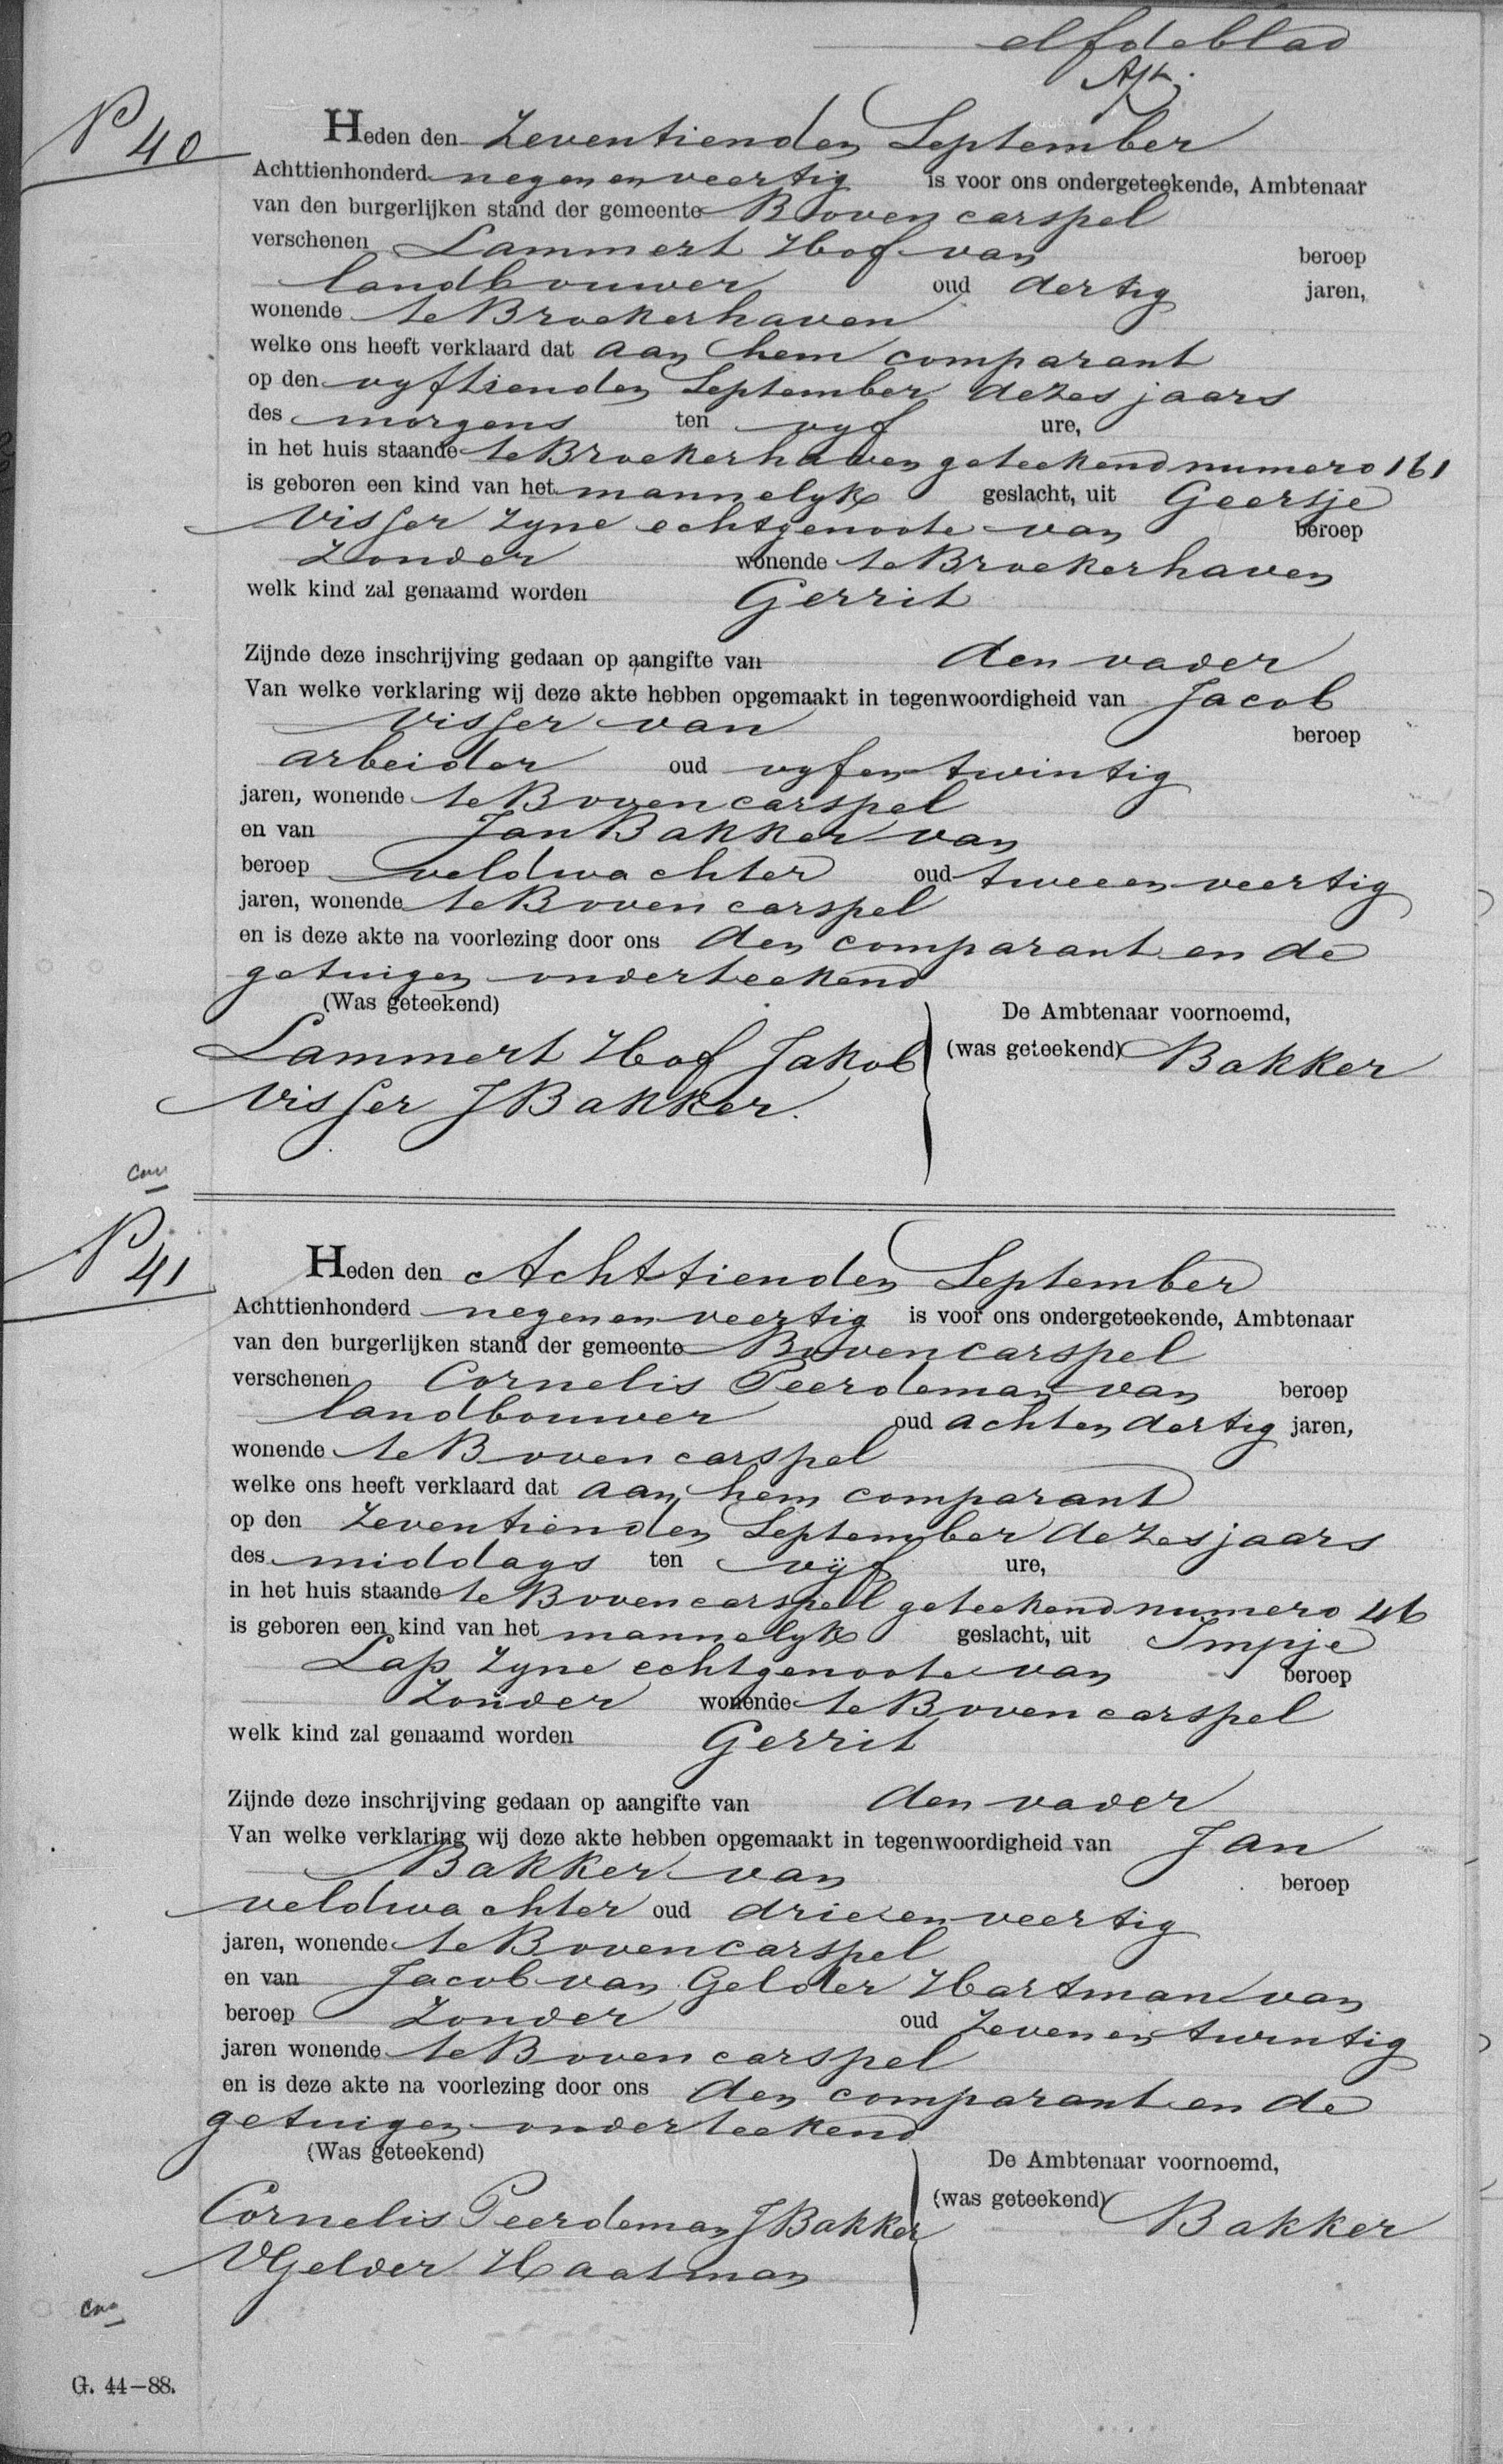 elfde blad
N 40
Heden den Zeventienden September
Achttienhonderd negenenveertig is voor ons ondergeteekende, Ambtenaar
van den burgerlijken stand der gemeente Bovencarspel
verschenen Lammert Hof van beroep
landbouwer oud dertig jaren,
wonende te Broekerhaven
welke ons heeft verklaard dat aan hem comparant
op den vyftienden September dezes jaars
des morgens ten vyf ure,
in het huis staande te Broekerhaven geteekend numero 161
is geboren een kind van het mannelyk geslacht, uit Geertje
Visser zyne echtgenoote van beroep
Zonder wonende te Broekerhaven
welk kind zal genaamd worden Gerrit
Zijnde deze inschrijving gedaan op aangifte van den vader
Van welke verklaring wij deze akte hebben opgemaakt in tegenwoordigheid van Jacob
Visser van beroep
arbeider oud vyfentwintig
jaren, wonende te Bovencarspel
en van Jan Bakker van
beroep veldwachter oud tweeenveertig
jaren, wonende te Bovencarspel
en is deze akte na voorlezing door ons den comparant en de
getuigen onderteekend
(Was geteekend) De Ambtenaar voornoemd,
Lammert Hof Jakob (was geteekend) Bakker
Visser J Bakker.
N 41
Heden den Achttienden September
Achttienhonderd negenenveertig is voor ons ondergeteekende, Ambtenaar
van den burgerlijken stand der gemeente Bovencarspel
verschenen Cornelis Peerdeman van beroep
landbouwer oud achtendertig jaren,
wonende te Bovencarspel
welke ons heeft verklaard dat aan hem comparant
op den Zeventienden September dezes jaars
des middags ten vijf ure,
in het huis staande te Bovencarspel geteekend numero 46
is geboren een kind van het mannelyk geslacht, uit Impje
Lap zyne echtgenoote van beroep
Zonder wonende te Bovencarspel
welk kind zal genaamd worden Gerrit
Zijnde deze inschrijving gedaan op aangifte van den vader
Van welke verklaring wij deze akte hebben opgemaakt in tegenwoordigheid van Jan
Bakker van beroep
veldwachter oud drieenveertig
jaren, wonende te Bovencarspel
en van Jacob van Gelder Hartman van
beroep Zonder oud Zevenentwintig
jaren wonende te Bovencarspel
en is deze akte na voorlezing door ons den comparant en de
getuigen onderteekend
(Was geteekend) De Ambtenaar voornoemd,
Cornelis Peerdeman J Bakker (was geteekend) Bakker
VGelder Haatman
G. 44–88.